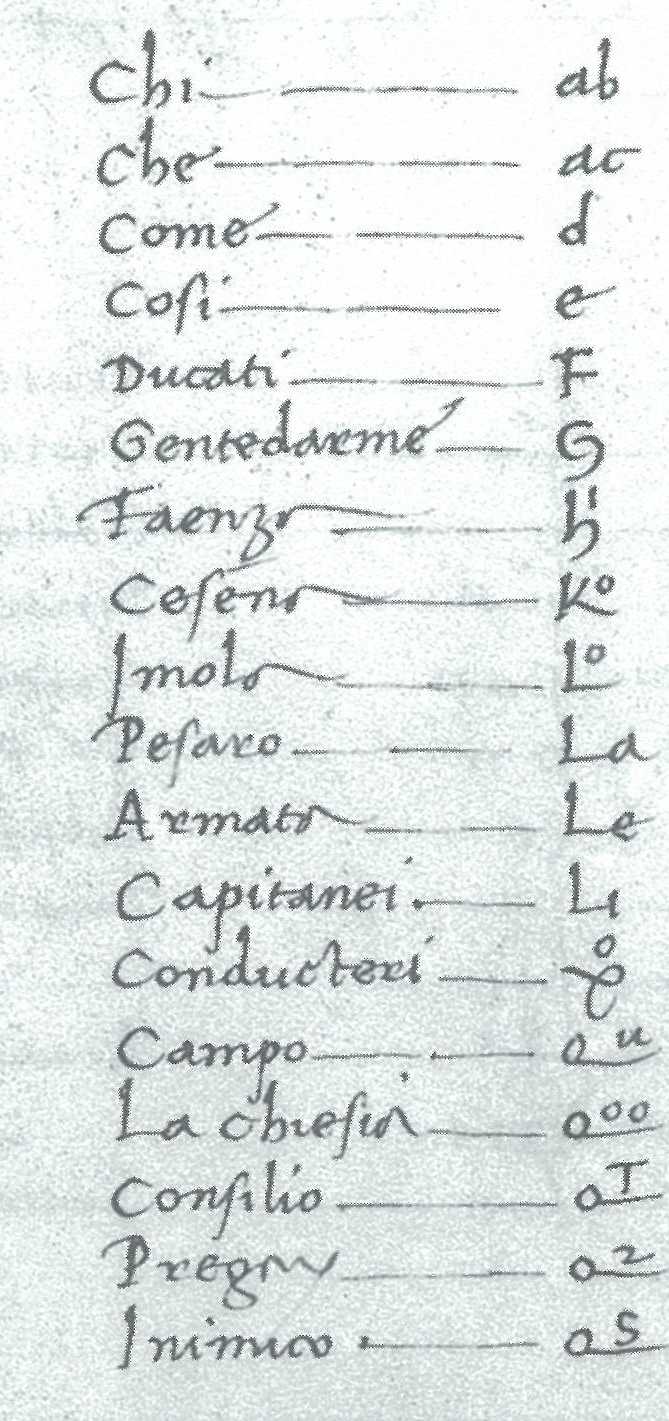 Chi ab
Che ac
Come d
Cosi e
Ducati F
Gentedarme G
Faenza h
Cesena Ko
Imola Lo
Pesaro La
Armata Le
Capitanei. Li
Conducteri
Campo o u
La chiesia o oo
Consilio o T
Pregai o 2
Inimico . o S